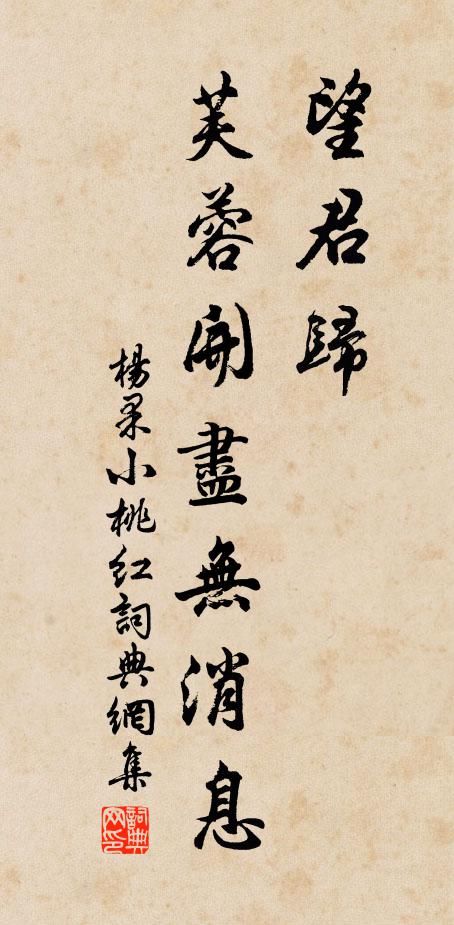 望君歸
芙蓉開盡無消息
楊果小桃红詞典網集
詞典网印